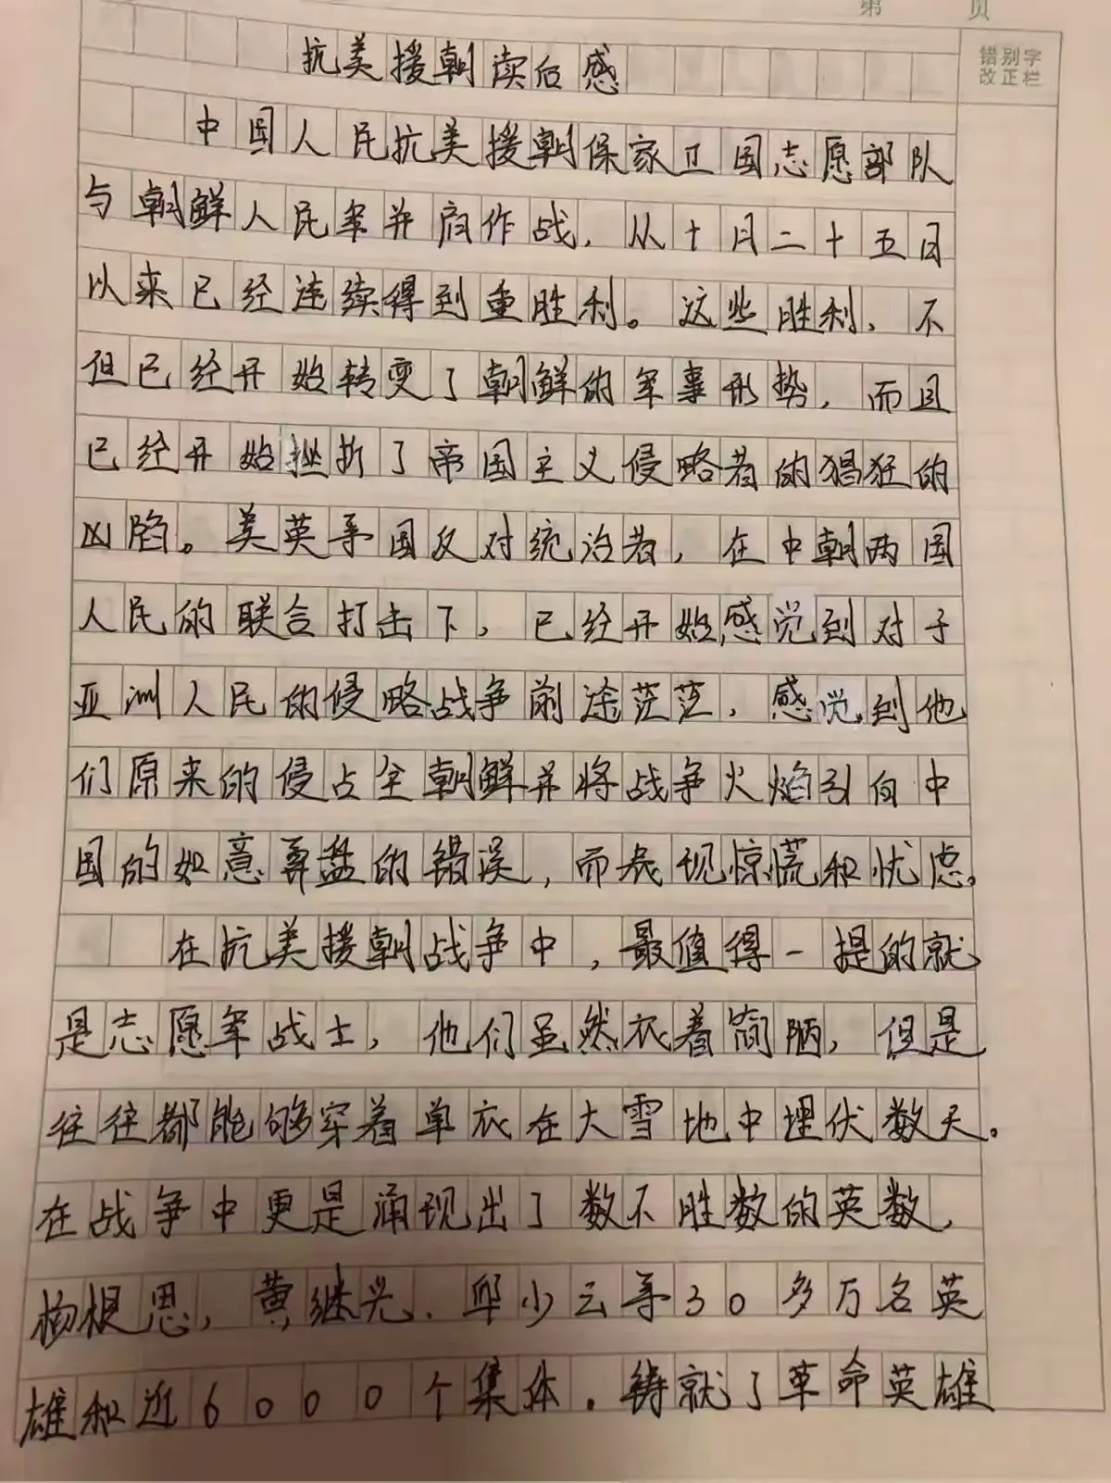 第 页
错别字
改正栏
抗美援朝读后感
中国人民抗美援朝保家卫国志愿部队
与朝鲜人民军并肩作战，从十月二十五日
以来已经连续得到重胜利。这些胜利，不
但已经开始转变了朝鲜的军事形势，而且
已经开始挫折了帝国主义侵略者的猖狂的
凶陷。美英等国反对统治者，在中朝两国
人民的联合打击下，已经开始感觉到对于
亚洲人民的侵略战争前途茫茫，感觉到他
们原来的侵占全朝鲜并将战争火焰引向中
国的如意算盘的错误，而表现惊慌和忧虑。
在抗美援朝战争中，最值得一提的就
是志愿军战士，他们虽然衣着简陋，但是
往往都能够穿着单衣在大雪地中埋伏数天。
在战争中更是涌现出了数不胜数的英数，
杨根思，黄继光．邱少云等30多万名英
雄和近6000个集体．铸就了革命英雄